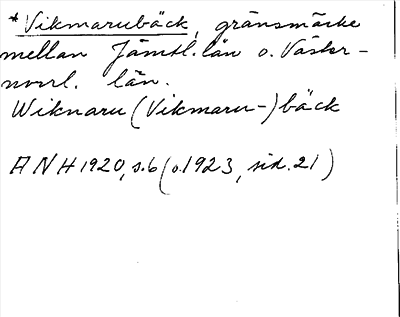 *Vikmarubäck, gränsmärke
mellan Jämtl. län o. Väster-
norrl. län.
Wiknaru (Vikmaru-) bäck
ANH 1920, s. 6 (o. 1923, sid. 21)